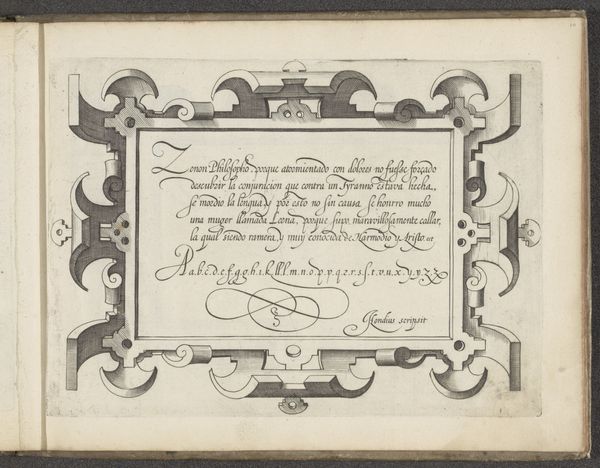 Zenon Philosopho, porque atormientado con dolores no fuesse forçado
descubrir la conjuricion que contra un Tyranno estava hecha,
se mordio la lengua, y por esto no sin causa se honrro mucho
una muger llamada Leona, porque supo maravillosamente callar,
la qual siendo ramera, y muy conocida de Harmodio y Aristo. et
A a.b.c.d.e.f.g.g.h.i.k.l.l.l.m.n.o.p.p.q.e.r.s.ſ.t.v.u.x.y.y.z.z.
JHondius scripsit